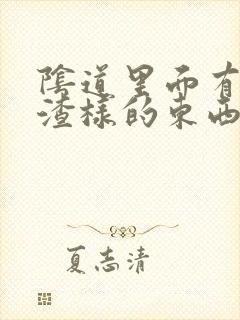 陰道里而有
渣樣的東西
夏志清